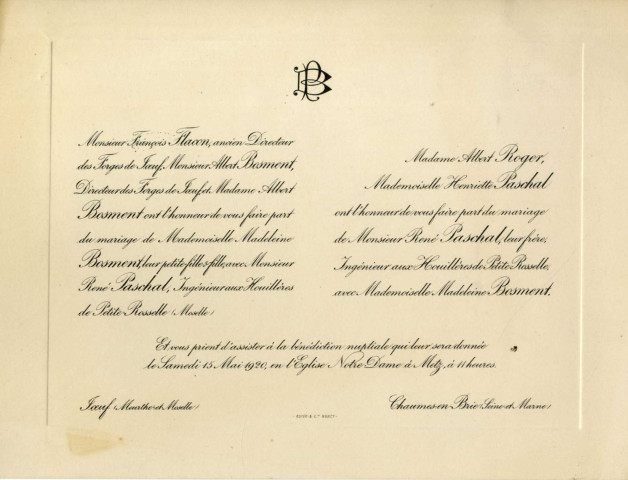 PB
Monsieur François Flacon, ancien Directeur
des Forges de Jœuf, Monsieur Albert Bosment,
Directeur des Forges de Jœuf et Madame Albert
Bosment ont l'honneur de vous faire part
du mariage de Mademoiselle Madeleine
Bosment, leur petite-fille & fille, avec Monsieur
René Paschal, Ingénieur aux Houillères
de Petite Rosselle (Moselle)
Madame Albert Roger,
Mademoiselle Henriette Paschal
ont l'honneur de vous faire part du mariage
de Monsieur René Paschal, leur frère,
Ingénieur aux Houillères de Petite Rosselle,
avec Mademoiselle Madeleine Bosment.
Et vous prient d'assister à la bénédiction nuptiale qui leur sera donnée
le Samedi 15 Mai 1920, en l'Eglise Notre-Dame à Metz, à 11 heures.
Jœuf (Meurthe-et-Moselle)
Chaumes-en-Brie (Seine-et-Marne)